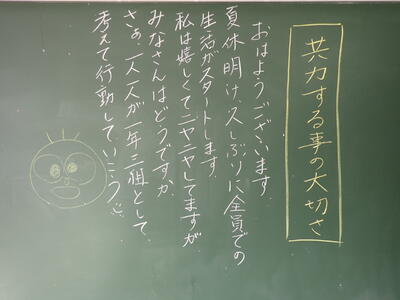 共力する事の大切さ
おはようございます。
夏休明け、久しぶりに全員での
生活がスタートします。
私は嬉しくてニヤニヤしてますが
みなさんはどうですか。
さぁ、一人一人が一年三組として
考えて行動していこう